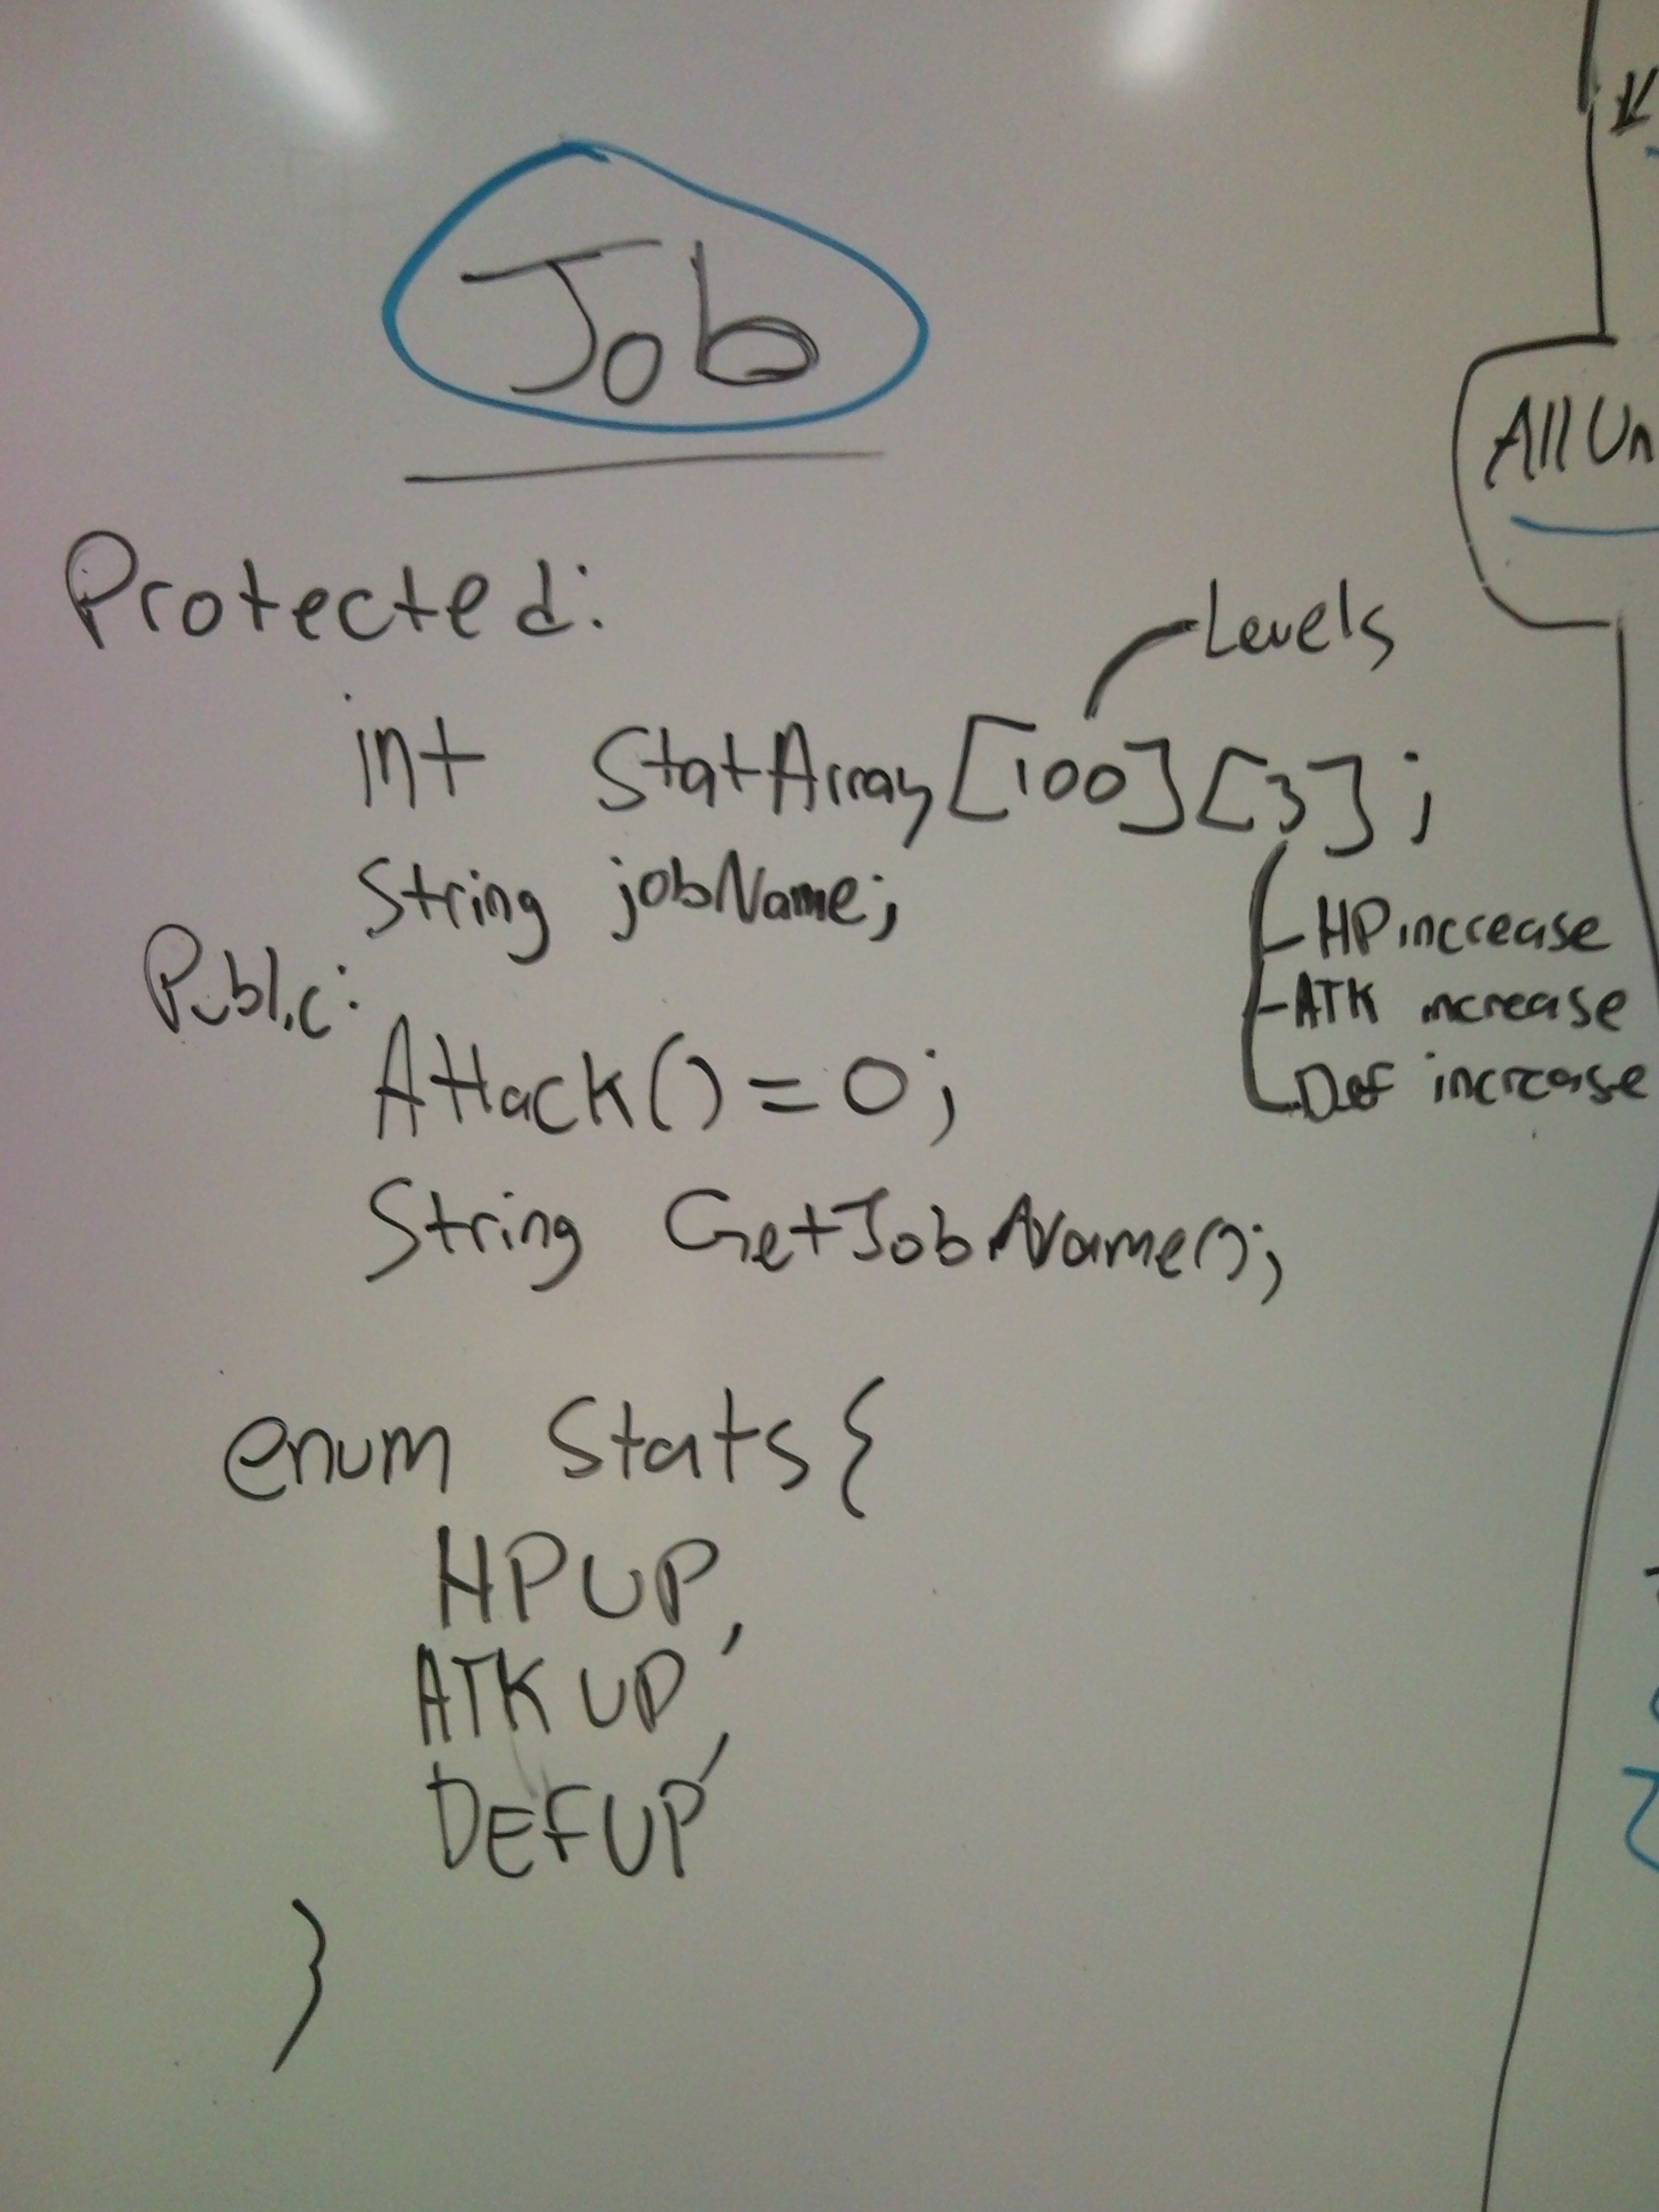 Job
Protected:
Levels
int StatArray[100][3];
HP increase
ATK increase
Def increase
String jobName;
Public:
Attack()=0;
String GetJobName();
enum Stats{
HPUP,
ATKUP,
DEFUP
}
All Un